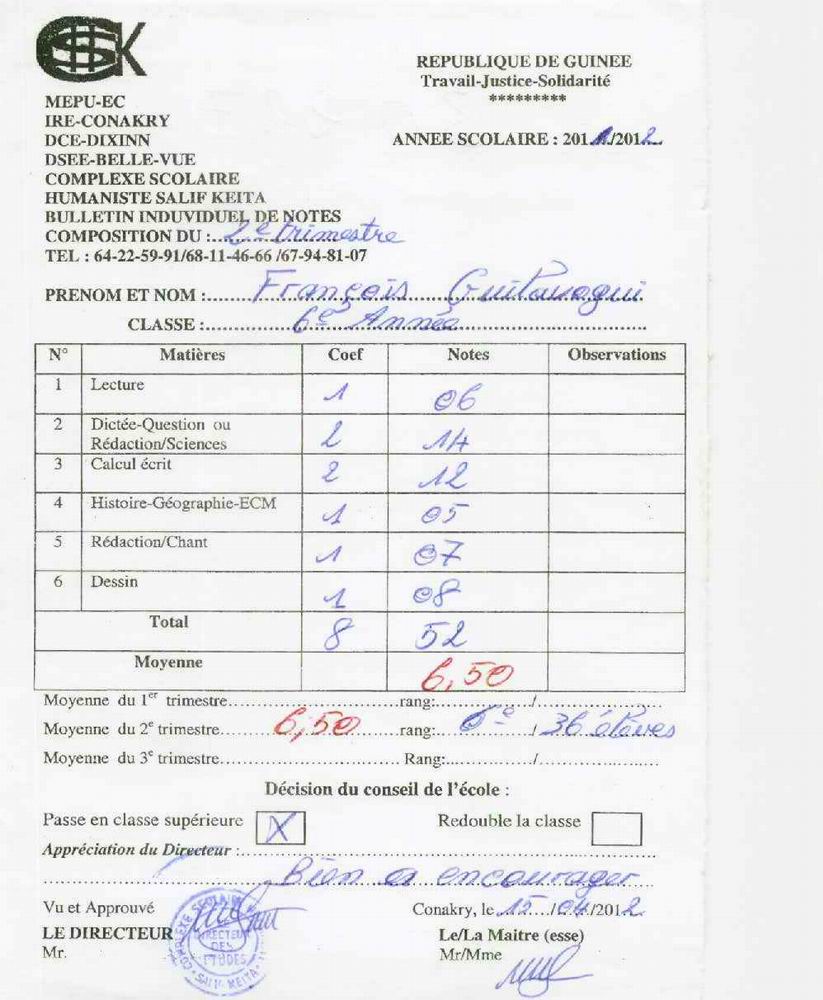 HSK
REPUBLIQUE DE GUINEE
Travail-Justice-Solidarité
*********
MEPU-EC
IRE-CONAKRY
DCE-DIXINN
DSEE-BELLE-VUE
COMPLEXE SCOLAIRE
HUMANISTE SALIF KEITA
BULLETIN INDUVIDUEL DE NOTES
COMPOSITION DU : 2e trimestre
TEL : 64-22-59-91/68-11-46-66 /67-94-81-07
ANNEE SCOLAIRE : 2011/2012
PRENOM ET NOM : François Guilavogui
CLASSE : 6e Année
N° Matières Coef Notes Observations
1 Lecture 1 06
2 Dictée-Question ou Rédaction/Sciences 2 14
3 Calcul écrit 2 12
4 Histoire-Géographie-ECM 1 05
5 Rédaction/Chant 1 07
6 Dessin 1 08
Total 8 52
Moyenne 6,50
Moyenne du 1er trimestre rang: /
Moyenne du 2e trimestre 6,50 rang: 6e / 36 élèves
Moyenne du 3e trimestre Rang: /
Décision du conseil de l'école :
Passe en classe supérieure X Redouble la classe
Appréciation du Directeur :
Bien a encourager
Vu et Approuvé Conakry, le 15/04/2012
LE DIRECTEUR Le/La Maitre (esse)
Mr. Mr/Mme
COMPLEXE SCOLAIRE
DIRECTEUR
DES
ETUDES
SALIF KEITA